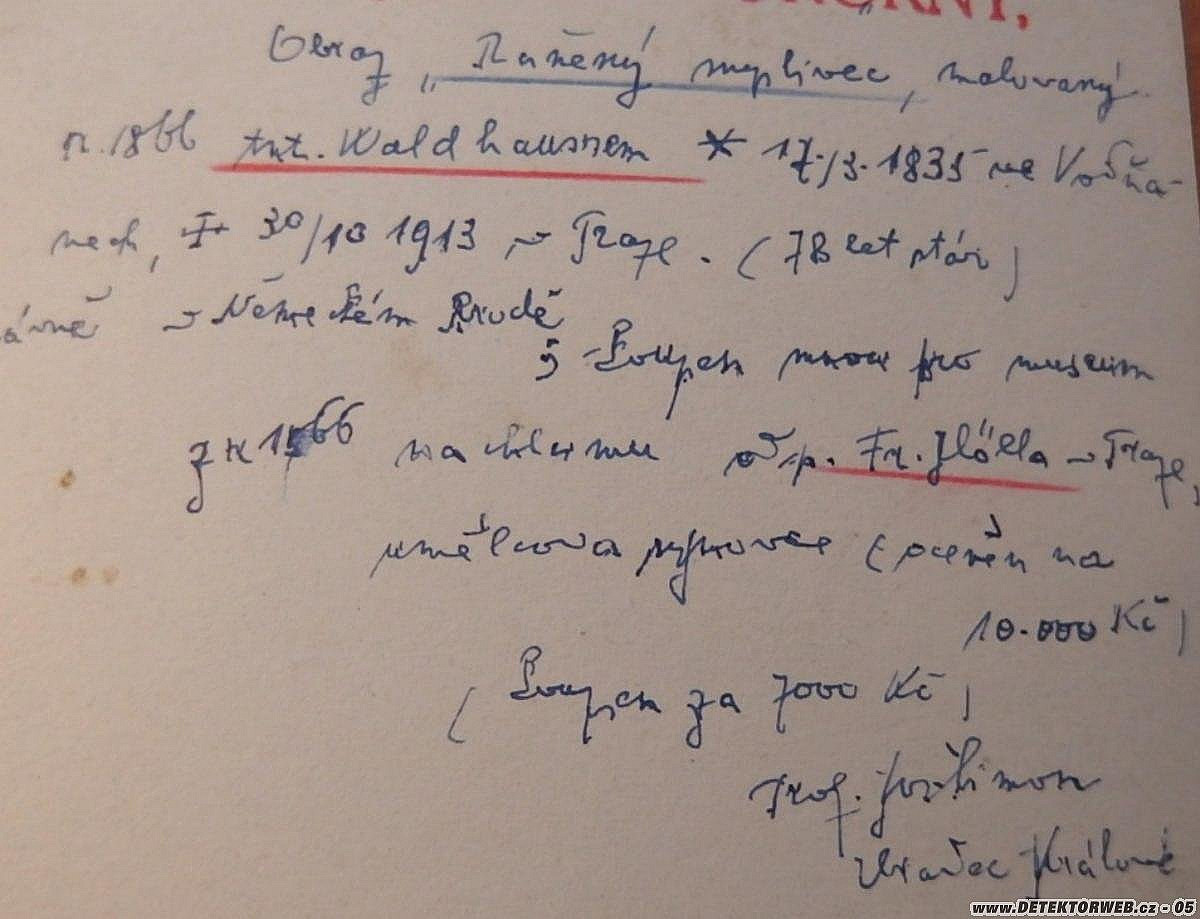 Obraz „Raněný myslivec, malovaný
r. 1866 Ant. Waldhausrem * 17./3. 1835 ve Vodňa-
nech, + 30/10 1913 v Praze. (78 let stár)
v Německém Brodě
; koupen mnou pro museum
z r. 1866 na od p. Fr. v Praze,
umělcova (oceněn na
10.000 Kč)
(koupen za 7000 Kč)
Prof.
Hradec Králové
www.DETEKTORWEB.cz - 05